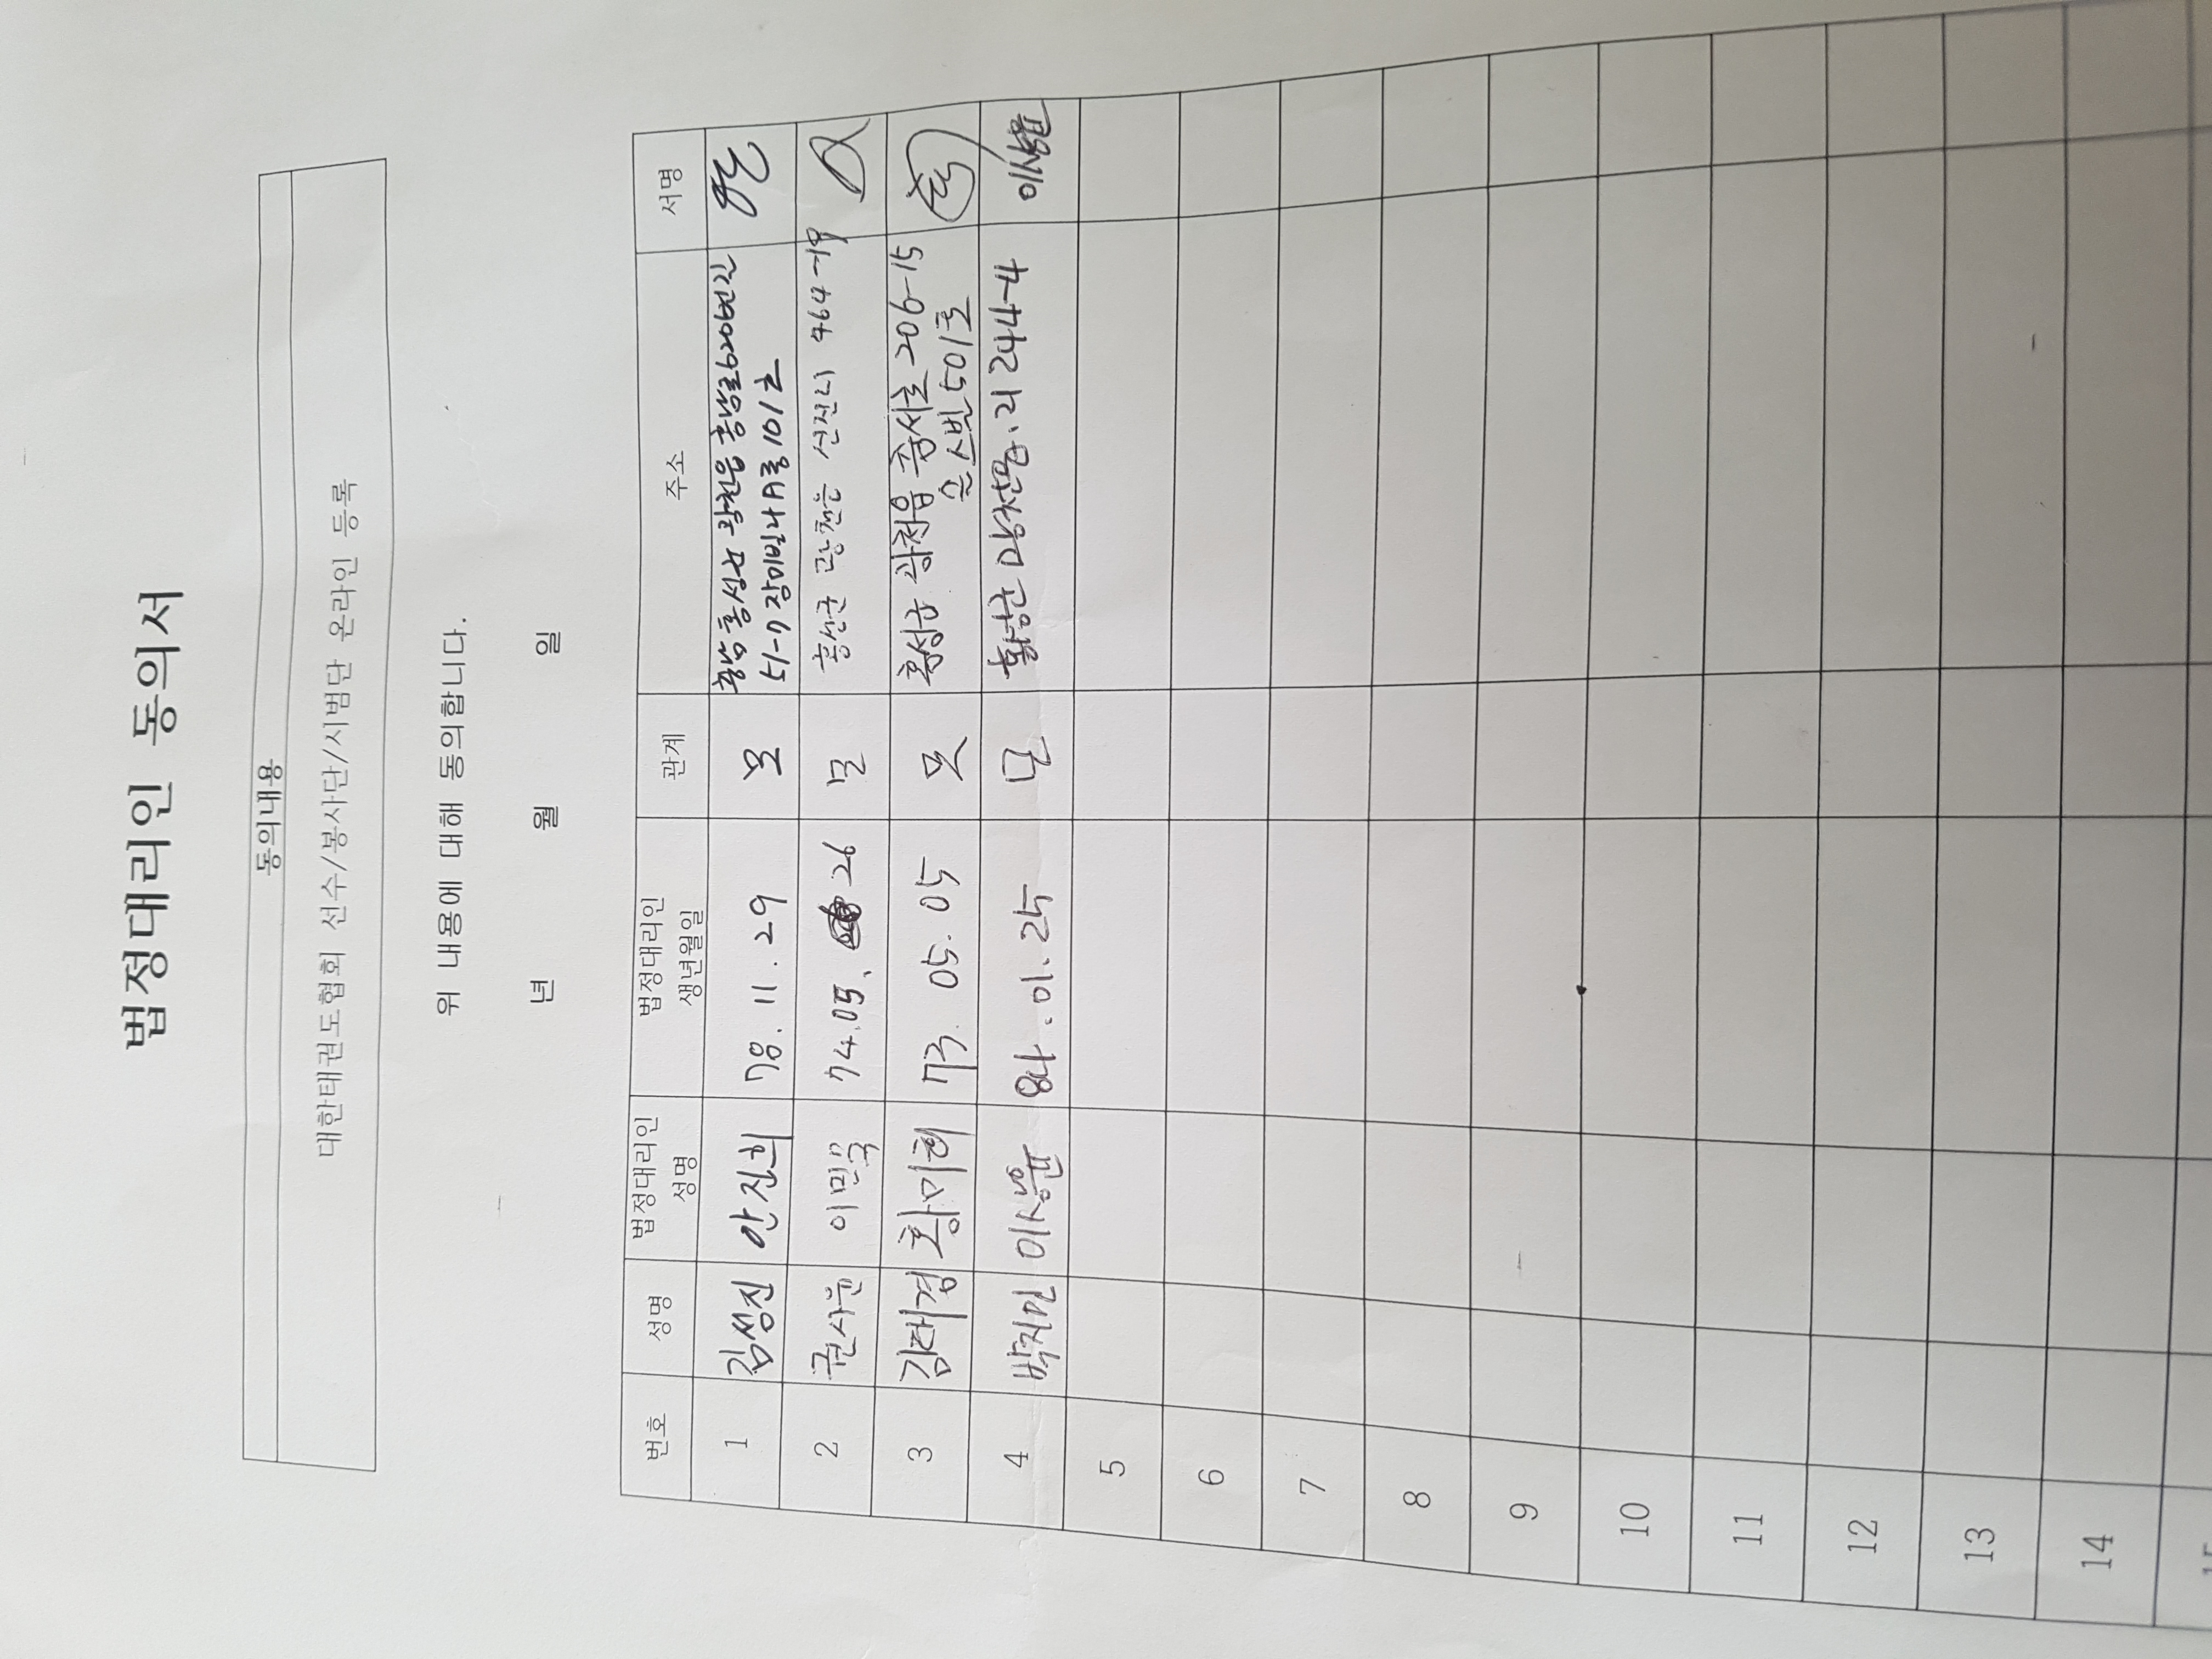 법정대리인 동의서
동의내용
대한태권도협회 선수/봉사단/시범단 온라인 등록
위 내용에 대해 동의합니다.
년 월 일
번호 성명 법정대리인 성명 법정대리인 생년월일 관계 주소 서명
1 김쌍진 안진희 78. 11. 29 모 충남 홍성군 광천읍 홍남로620번길
51-7 장미빌라 A동 101호
2 권사윤 이민숙 74.05. 26 모 홍성군 광천읍 신진리 464-19
3 김태경 황미희 73. 05. 05 모 홍성군 광천읍 206-15
501호
4 박지민 이상윤 84. 01. 25 모 홍성군 광천읍 244-4 이상윤
5
6
7
8
9
10
11
12
13
14
15